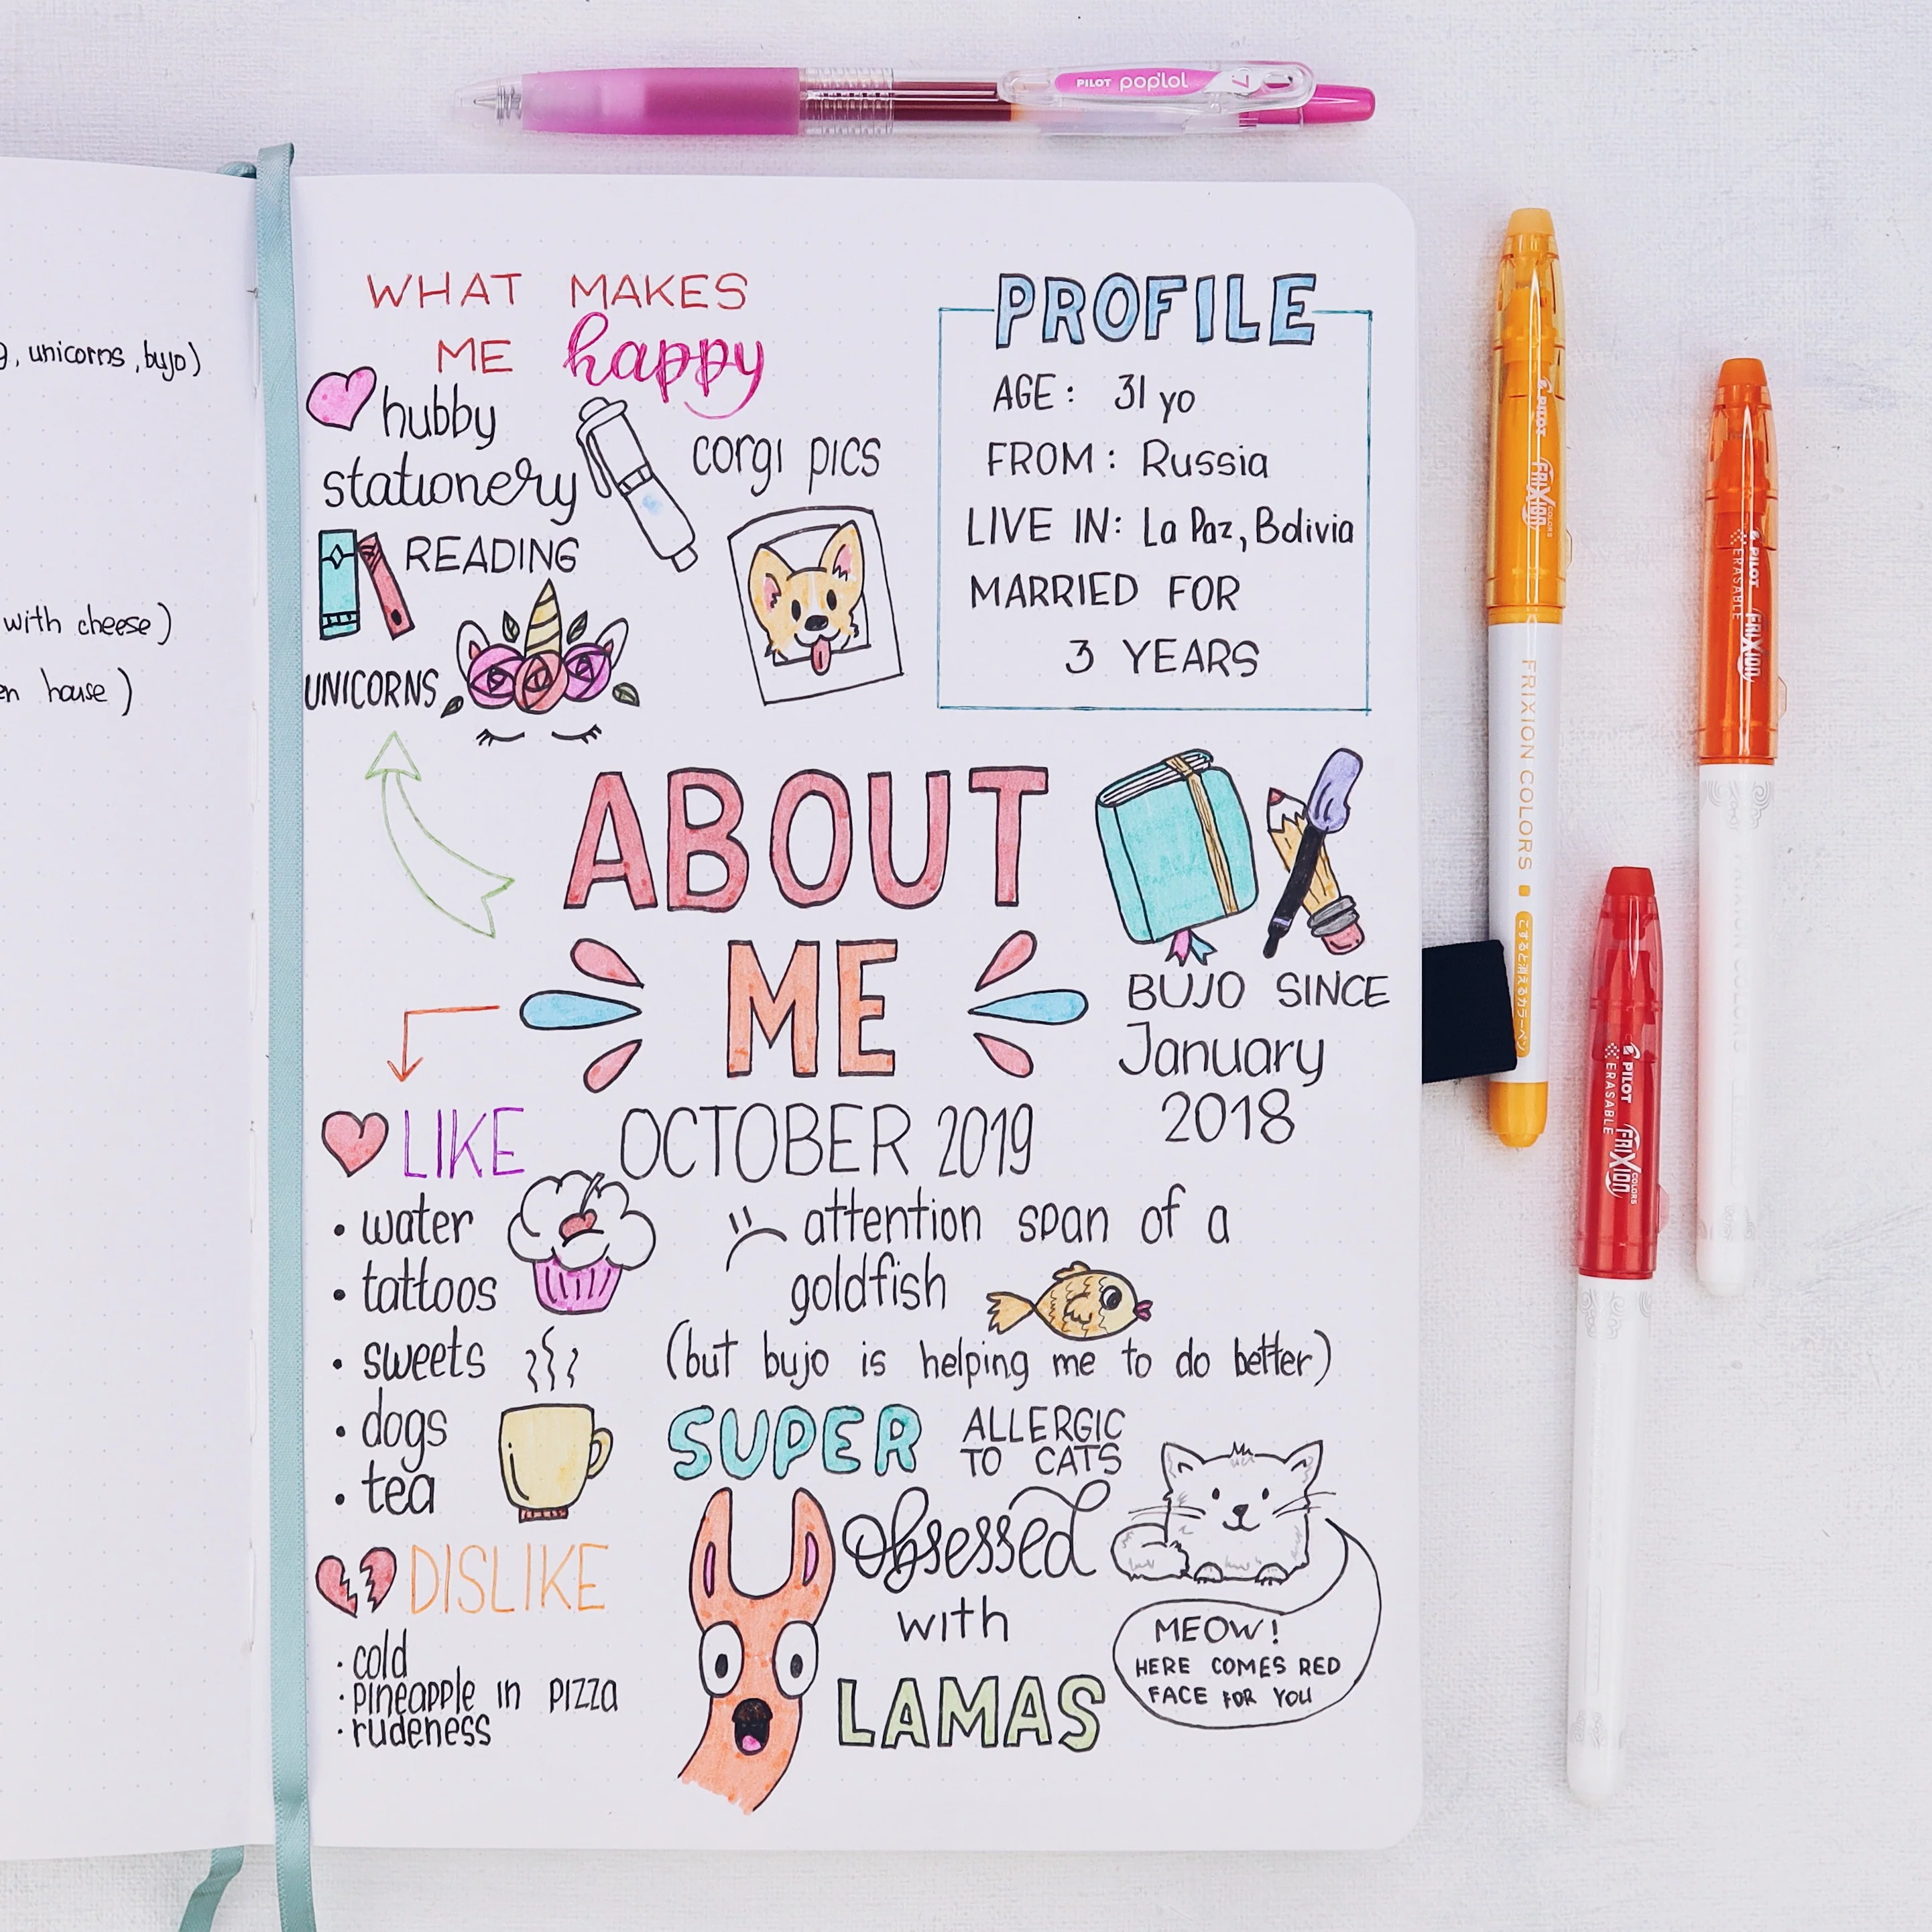 PILOT pop'lol 7
, unicorns, bujo)
with cheese)
house)
WHAT MAKES
ME happy
hubby
stationery
corgi pics
READING
UNICORNS
PROFILE
AGE: 31 yo
FROM: Russia
LIVE IN: La Paz, Bolivia
MARRIED FOR
3 YEARS
ABOUT
ME
OCTOBER 2019
BUJO SINCE
January
2018
LIKE
• water
• tattoos
• sweets
• dogs
• tea
DISLIKE
· cold
· pineapple in pizza
· rudeness
attention span of a
goldfish
(but bujo is helping me to do better)
SUPER ALLERGIC
TO CATS
obsessed
with
LAMAS
MEOW!
HERE COMES RED
FACE FOR YOU
PILOT FRIXION COLORS
FRIXION COLORS
こすると消えるカラーペン
PILOT FRIXION
ERASABLE
PILOT FRIXION COLORS
ERASABLE